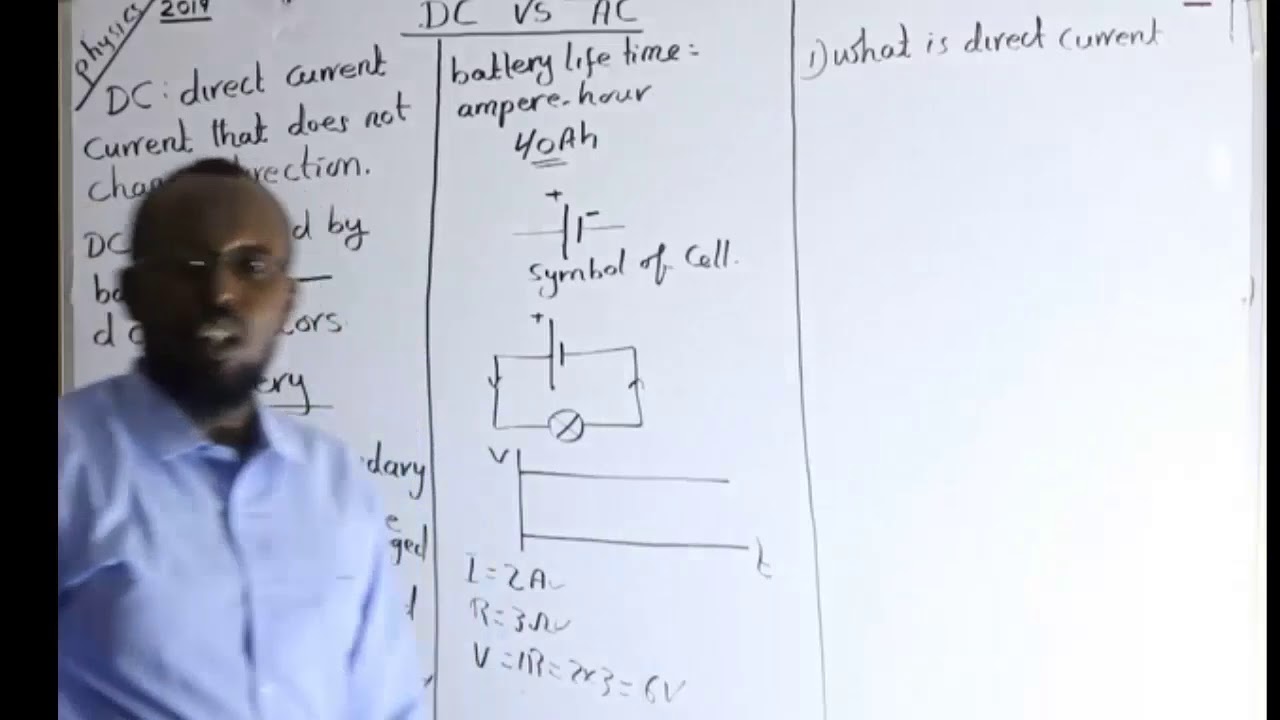 physics
2019
DC VS AC
DC: direct current
current that does not
direction.
DC by
dary
battery life time:
ampere-hour
40Ah
+ -
symbol of cell.
+
V
t
I=2A
R=3Ω
V=IR=2x3=6V
1) what is direct current